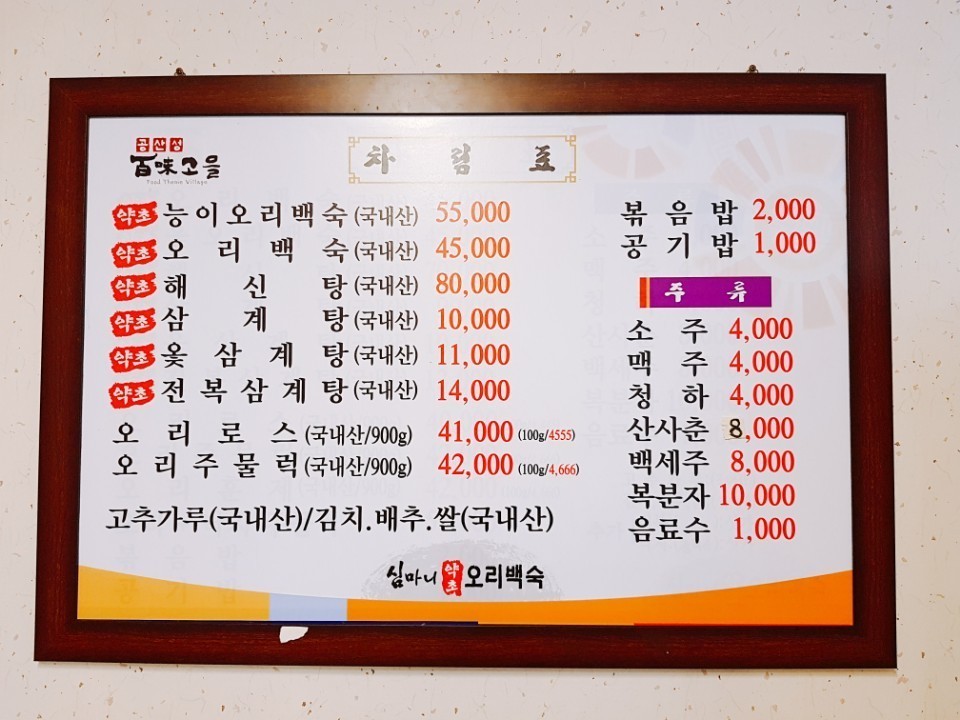 공산성
百味고을
Food Theme Village
차림표
약초 능이오리백숙(국내산) 55,000
약초 오리백숙(국내산) 45,000
약초 해신탕(국내산) 80,000
약초 삼계탕(국내산) 10,000
약초 옻삼계탕(국내산) 11,000
약초 전복삼계탕(국내산) 14,000
오리로스(국내산/900g) 41,000 (100g/4555)
오리주물럭(국내산/900g) 42,000 (100g/4,666)
고추가루(국내산)/김치.배추.쌀(국내산)
볶음밥 2,000
공기밥 1,000
주류
소주 4,000
맥주 4,000
청하 4,000
산사춘 8,000
백세주 8,000
복분자 10,000
음료수 1,000
심마니 약초 오리백숙